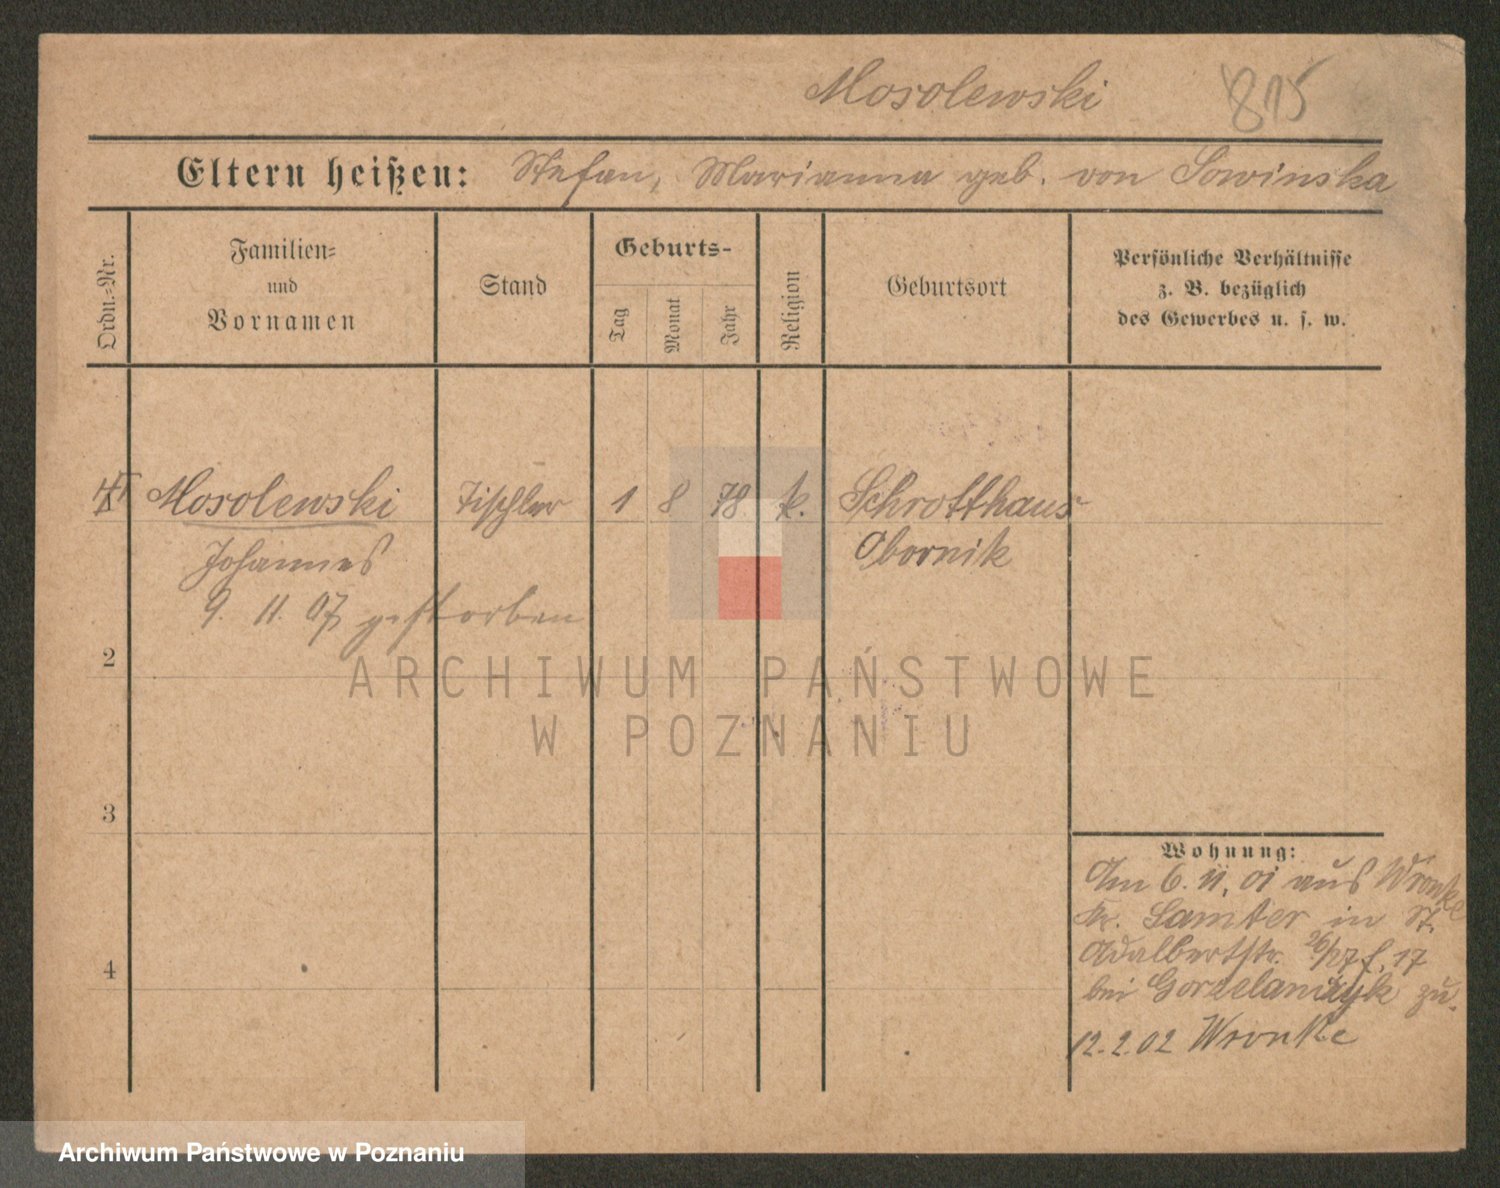 Mosolewski 815
Eltern heißen: Stefan, Marianna geb. von Sowinska
Ordn.-Nr.
Familien-
und
Vornamen
Stand
Geburts-
Tag
Monat
Jahr
Religion
Geburtsort
Persönliche Verhältnisse
z. B. bezüglich
des Gewerbes u. s. w.
1 Mosolewski Tischler 1 8 78 k. Schrotthaus
Johannes Obornik
9. 11. 07 gestorben
2
ARCHIWUM PAŃSTWOWE
W POZNANIU
3
Wohnung:
Am 6. 11. 01 aus Wronke
Kr. Samter in St.
Adalbertstr. 26/27 f. 17
bei Gorzelanczyk zu.
4
12. 2. 02 Wronke
Archiwum Państwowe w Poznaniu